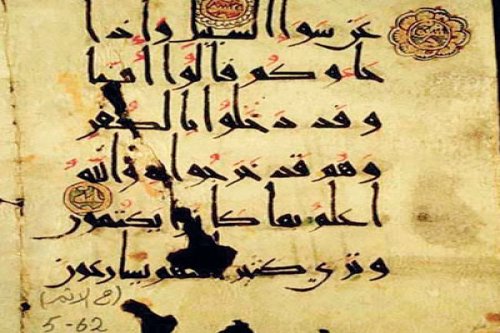 عن سواء السبيل وإذا
جاءوكم قالوا آمنا
وقد دخلوا بالكفر
وهم قد خرجوا به والله
أعلم بما كانوا يكتمون
وترى كثيرا منهم يسارعون
5-62